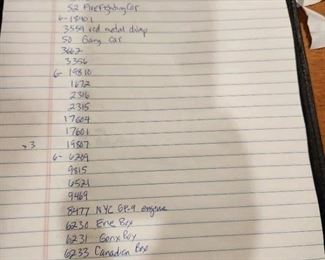 52 Fire Fighting Car
6- 18401
3559 red metal dump
50 Gang Car
3662
3356
6- 19810
1672
2316
2315
17604
17601
x3 19807
6- 6209
9815
6521
9469
8477 NYC GP-9 engine
6230 Erie Box
6231 Gonx Box
6233 Canadian Box